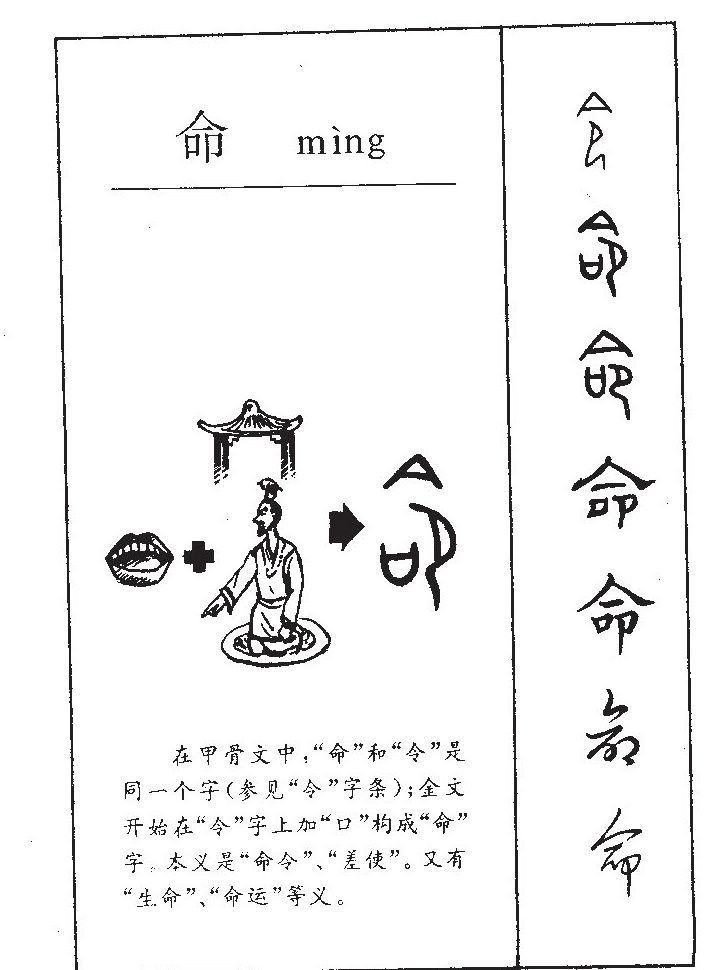 命 mìng
在甲骨文中，“命”和“令”是
同一个字(参见“令”字条);金文
开始在“令”字上加“口”构成“命”
字。本义是“命令”、“差使”。又有
“生命”、“命运”等义。
命
命
命
命
命
命